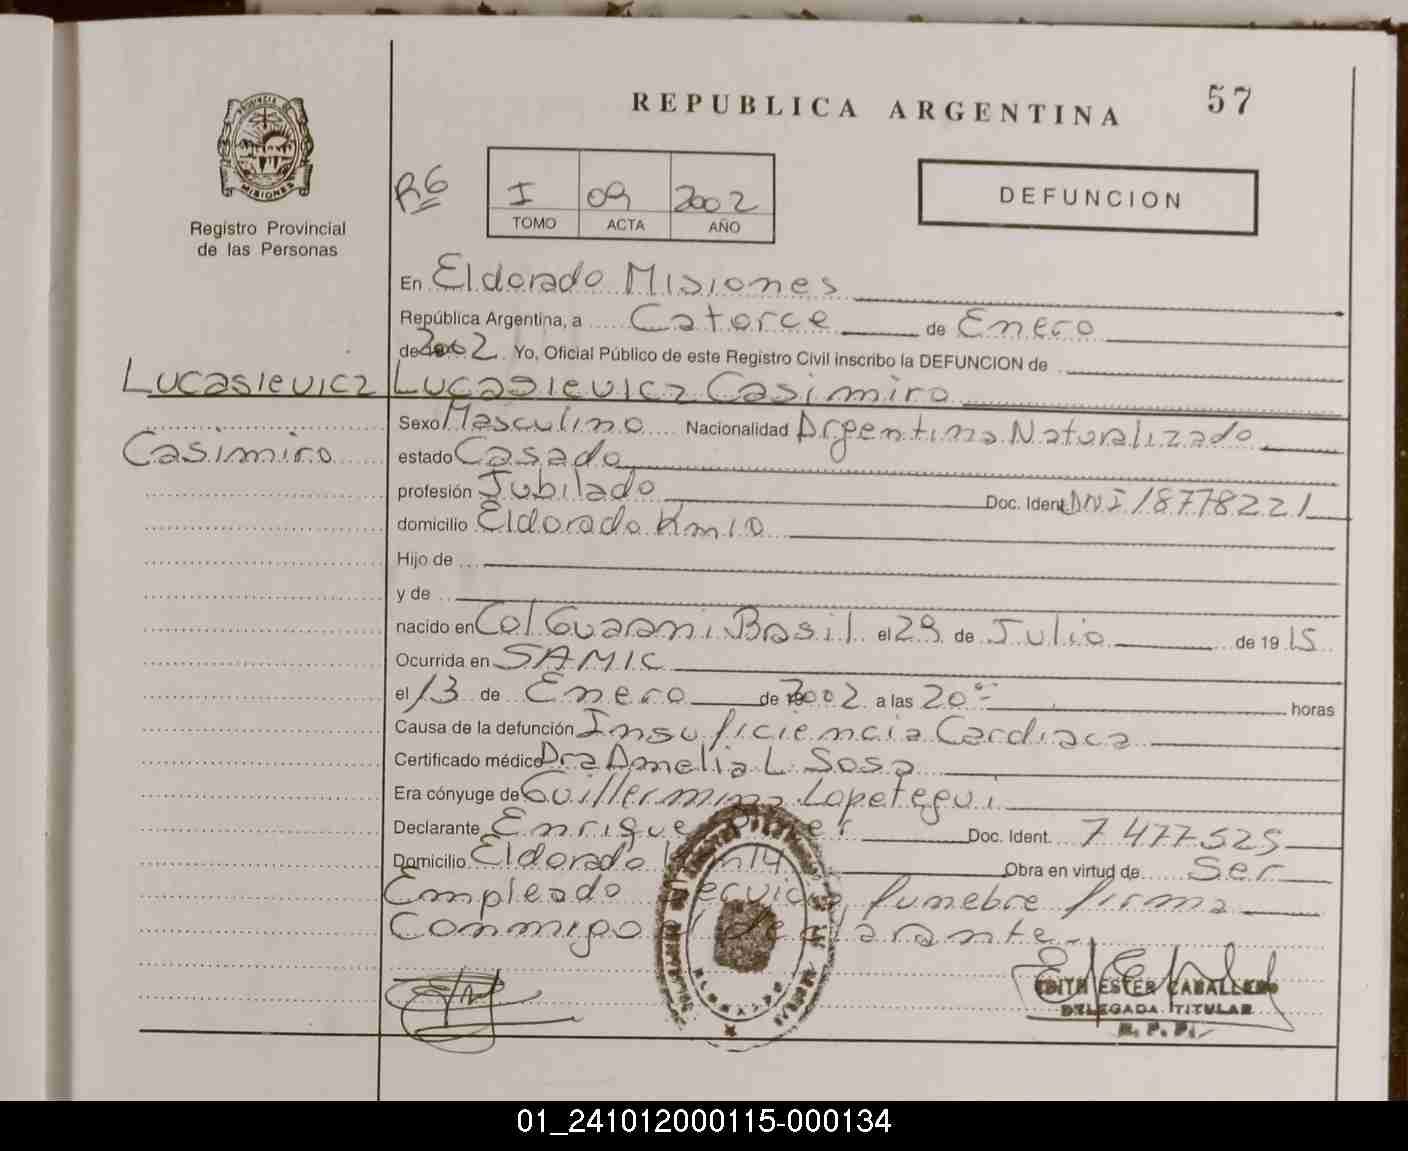 57
REPUBLICA ARGENTINA
PROVINCIA DE
MISIONES
Registro Provincial
de las Personas
R6
I 09 2002
TOMO ACTA AÑO
DEFUNCION
En Eldorado Misiones
República Argentina, a Catorce de Enero
de 2002. Yo, Oficial Público de este Registro Civil inscribo la DEFUNCION de
Lucasievicz
Casimiro
Lucasievicz Casimiro
Sexo Masculino Nacionalidad Argentino Naturalizado
estado Casado
profesión Jubilado Doc. Ident. DNI 18778221
domicilio Eldorado Km 10
Hijo de
y de
nacido en Col Guarani Brasil el 29 de Julio de 19 15
Ocurrida en SAMIC
el 13 de Enero de 2002 a las 20 horas
Causa de la defunción Insuficiencia Cardiaca
Certificado médico Dra Amelia L. Sosa
Era cónyuge de Guillermina Lopetegui
Declarante Enrique Doc. Ident. 7.477.525
Domicilio Eldorado Km 14 Obra en virtud de Ser
Empleado Servicio funebre firma
Conmigo el declarante.-
EDITH ESTER CABALLERO
DELEGADA TITULAR
R. P. P.
01_241012000115-000134